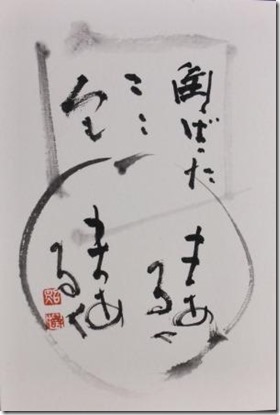 角ばった
ここ
ろも
まあ
るく
まあ
るく